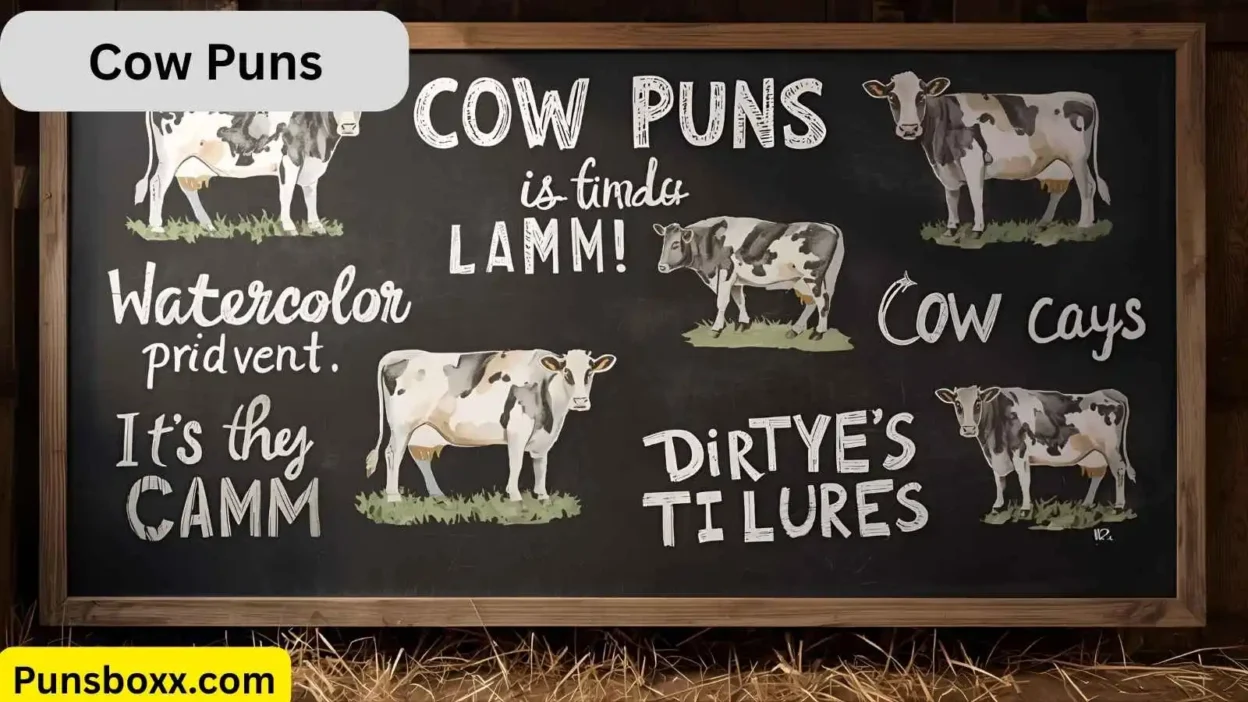 Cow Puns
COW PUNS
is timda
LAMM!
Watercolor
pridvent.
Cow cays
It's they
CAMM
DiRTYE'S
TILURES
Punsboxx.com